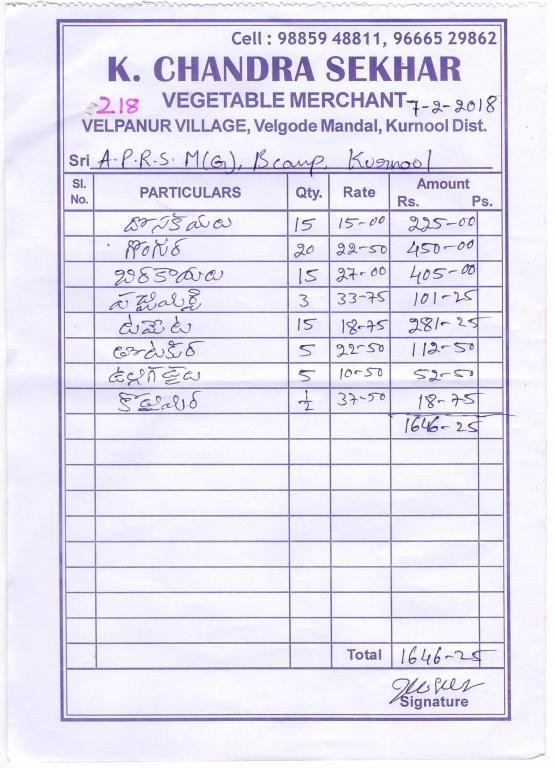 Cell : 98859 48811, 96665 29862
K. CHANDRA SEKHAR
218 VEGETABLE MERCHANT 7-2-2018
VELPANUR VILLAGE, Velgode Mandal, Kurnool Dist.
Sri A.P.R.S. M(G), Bcamp, Kurnool
Sl. No. PARTICULARS Qty. Rate Amount Rs. Ps.
దోసకాయలు 15 15-00 225-00
గోంగూర 20 22-50 450-00
బీరకాయలు 15 27-00 405-00
పచ్చిమిర్చి 3 33-75 101-25
టమోట 15 18-75 281-25
తోటకూర 5 22-50 112-50
ఉల్లిగడ్డలు 5 10-50 52-50
కొత్తిమీర ½ 37-50 18-75
1646-25
Total 1646-25
Signature